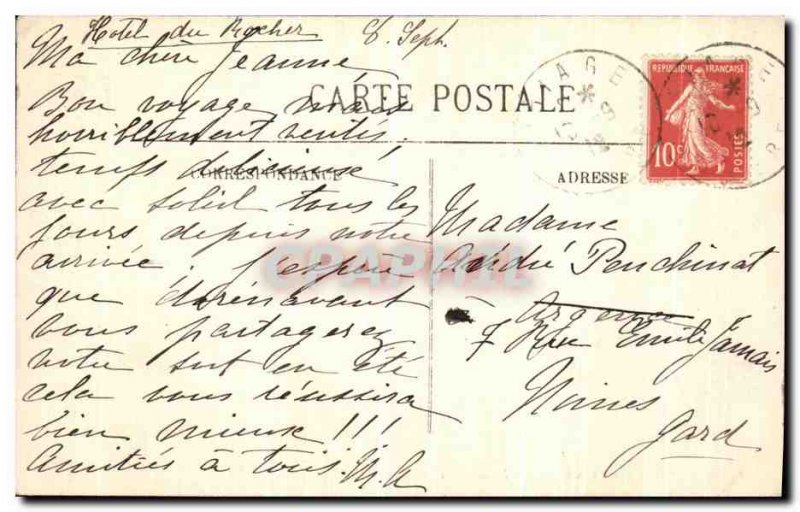 Hotel du Rocher 8 Sept.
Ma chère Jeanne
Bon voyage mais
horriblement ventés,
temps
avec soleil tous les
jours depuis notre
arrivée; j'espère
que dorénavant
vous partagerez
notre sort en été
cela vous réussira
bien mieux!!!
Amitiés à tous. M.A
CARTE POSTALE
CORRESPONDANCE
ADRESSE
REPUBLIQUE FRANÇAISE
10c
POSTES
Madame
André Penchinat
7 Rue Emile Jamais
Nimes
Gard
CPAPHIL